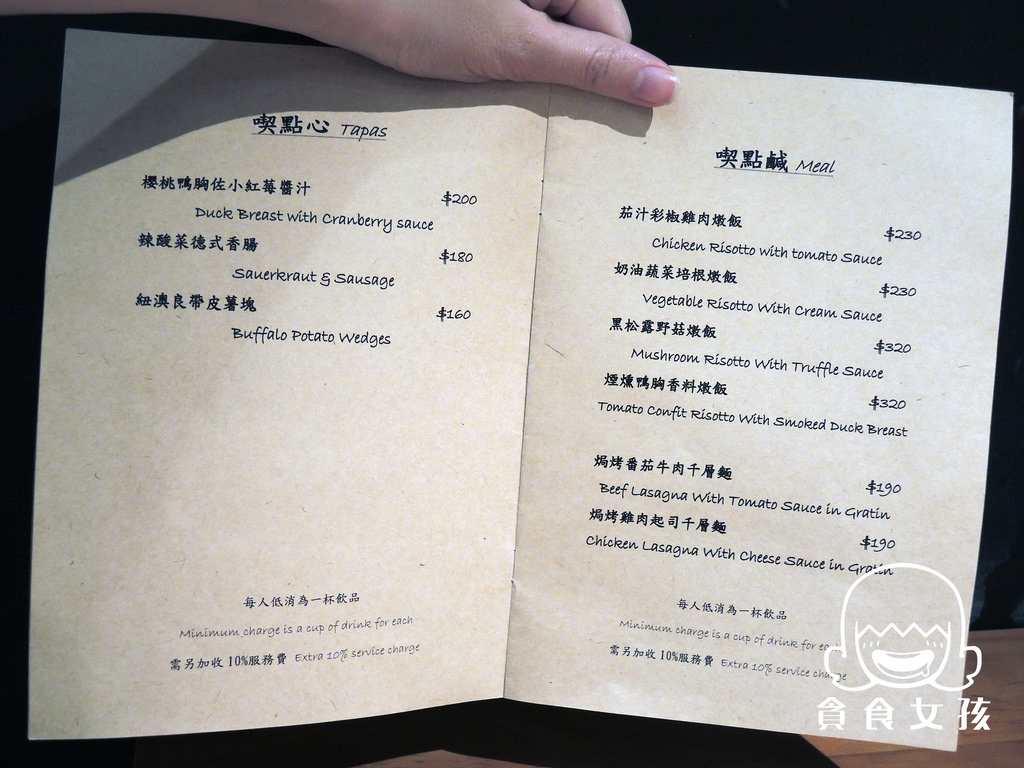 喫點心 Tapas
櫻桃鴨胸佐小紅莓醬汁
$200
Duck Breast with Cranberry sauce
辣酸菜德式香腸
$180
Sauerkraut & Sausage
紐澳良帶皮薯塊
$160
Buffalo Potato Wedges
每人低消為一杯飲品
Minimum charge is a cup of drink for each
需另加收 10%服務費 Extra 10% service charge
喫點鹹 Meal
茄汁彩椒雞肉燉飯
$230
Chicken Risotto with tomato Sauce
奶油蔬菜培根燉飯
$230
Vegetable Risotto With Cream Sauce
黑松露野菇燉飯
$320
Mushroom Risotto With Truffle Sauce
煙燻鴨胸香料燉飯
$320
Tomato Confit Risotto With Smoked Duck Breast
焗烤番茄牛肉千層麵
$190
Beef Lasagna With Tomato Sauce in Gratin
焗烤雞肉起司千層麵
$190
Chicken Lasagna With Cheese Sauce in Gratin
每人低消為一杯飲品
Minimum charge is a cup of drink for each
需另加收 10%服務費 Extra 10% service charge
貪食女孩